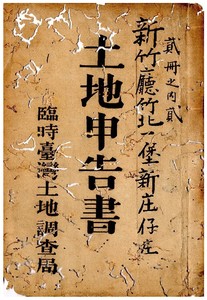 貳冊之內貳
新竹廳竹北一堡新庄仔庄
土地申告書
臨時臺灣土地調查局